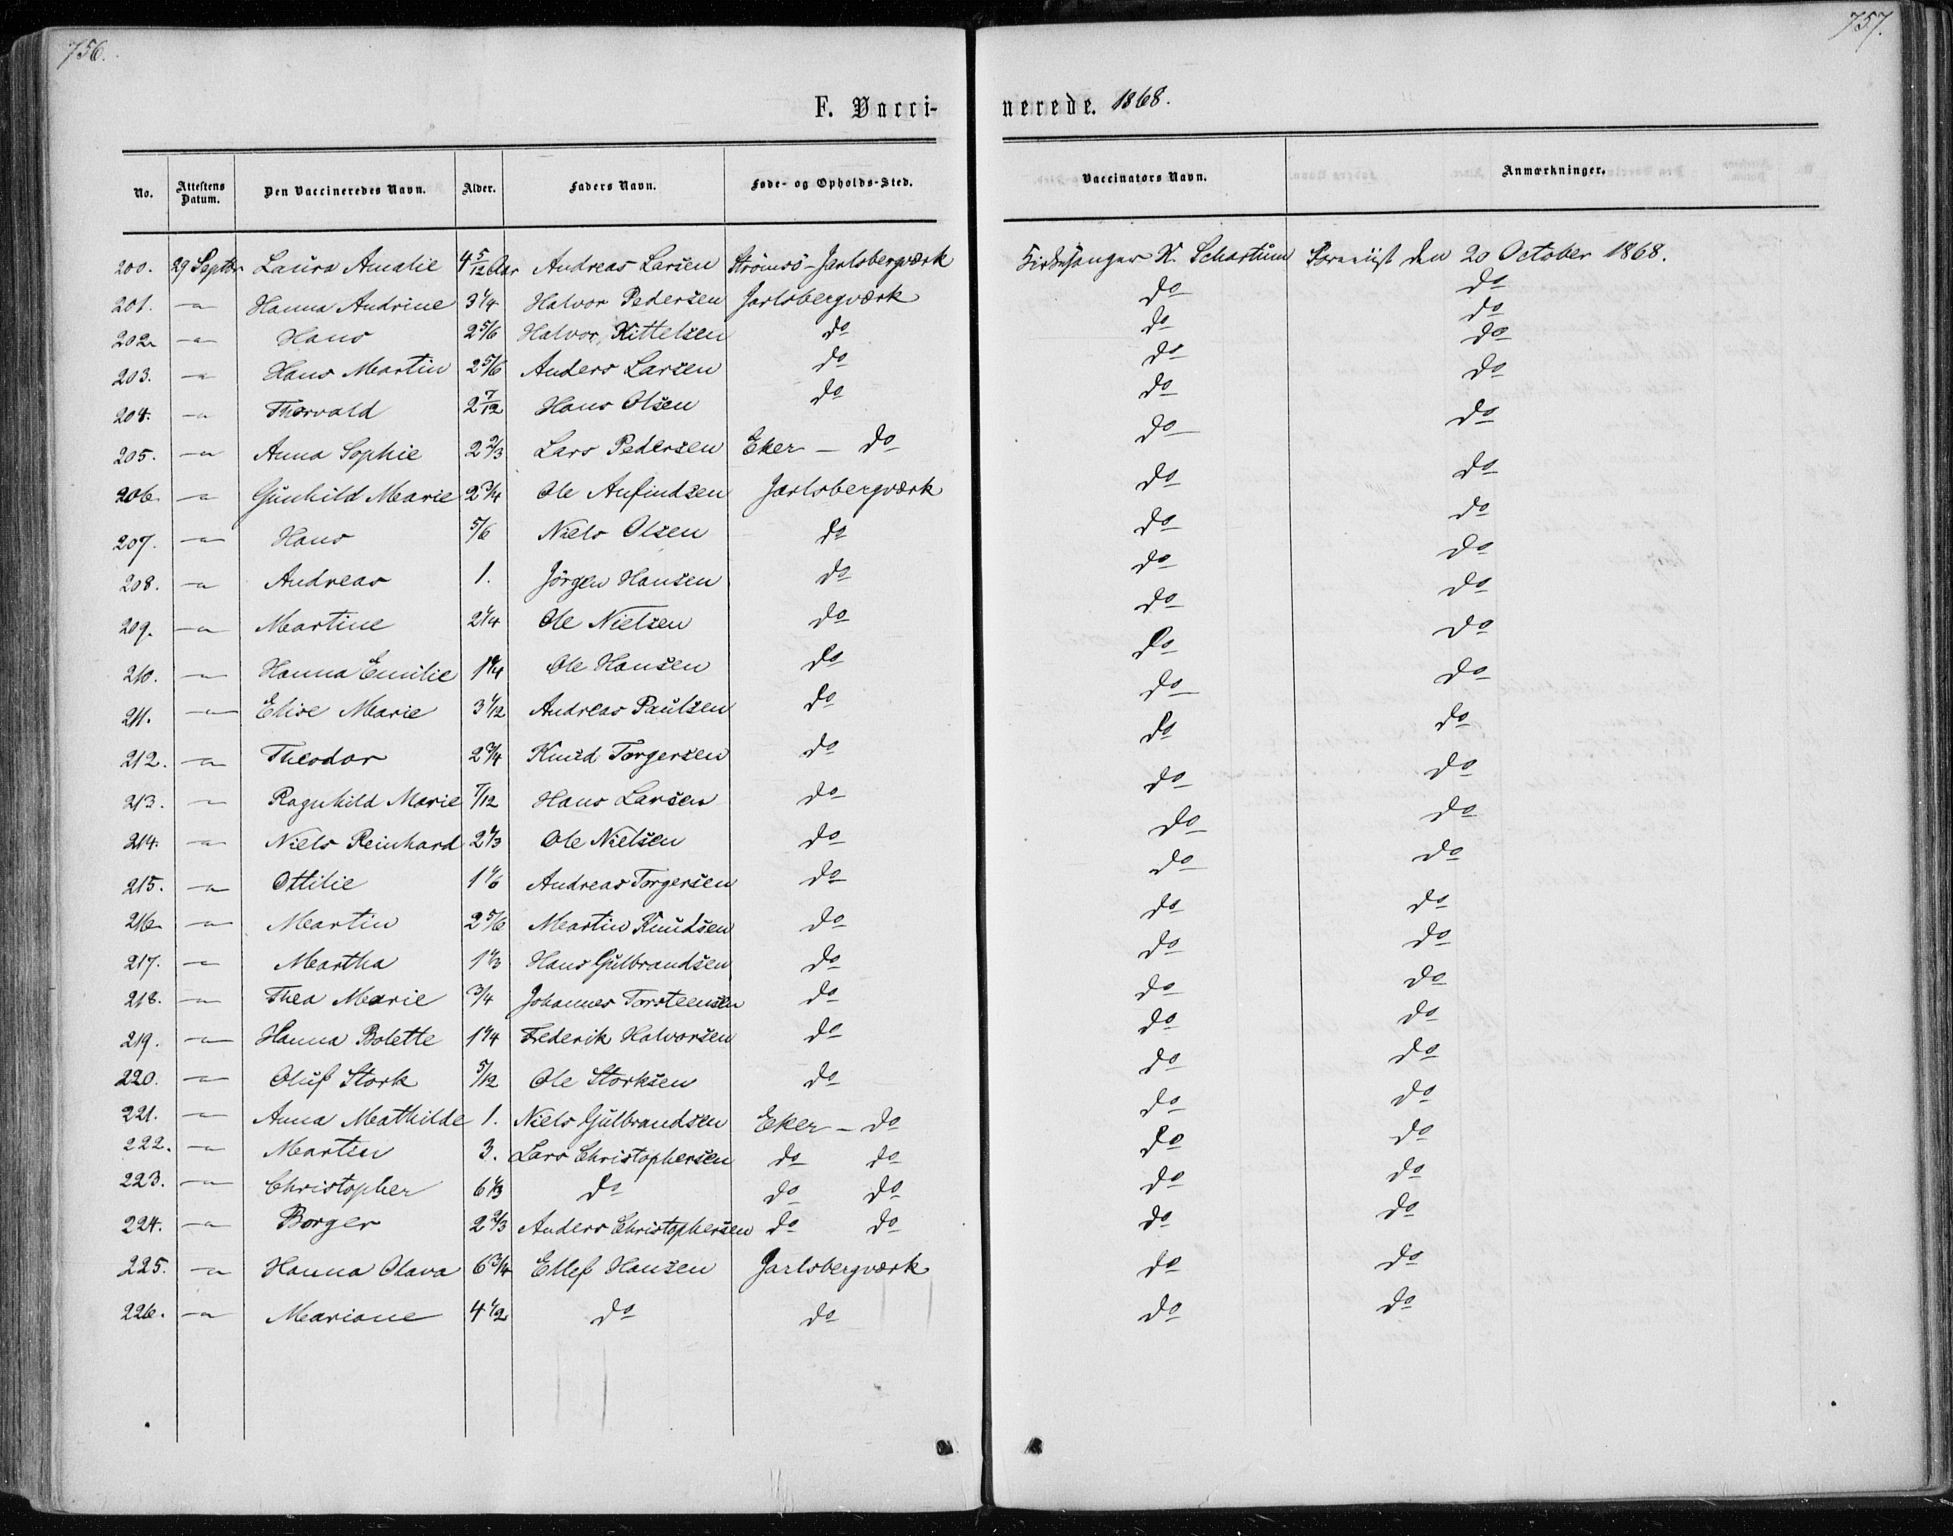 756.
757.
F. Vacci-
nerede. 1868.
No. Attestens Datum. Den Vaccineredes Navn. Alder. Faders Navn. Føde- og Opholds-Sted. Vaccinators Navn. Anmærkninger.
200. 29 Septbr Laura Amalie 4 5/12 Aar Andreas Larsen Strømsö - Jarlsbergværk Kirkesanger K. Schartum den 20 October 1868.
201. -"- Hanna Andrine 3 1/4 Halvor Pedersen Jarlsbergværk do do
202 -"- Hans 2 5/6 Halvor Kittelsen do do do
203. -"- Hans Martin 2 5/6 Anders Larsen do do do
204. -"- Thorvald 2 7/12 Hans Olsen do do do
205. -"- Anna Sophie 2 2/3 Lars Pedersen Eker - do do do
206 -"- Gunhild Marie 2 3/4 Ole Anfindsen Jarlsbergværk do do
207. -"- Hans 5/6 Niels Olsen do do do
208. -"- Andreas 1. Jörgen Hansen do do do
209. -"- Martine 2 1/4 Ole Nielsen do do do
210. -"- Hanna Emilie 1 1/4 Ole Hansen do do do
211. -"- Elise Marie 3 1/12 Andreas Paulsen do do do
212. -"- Theodor 2 3/4 Knud Torgersen do do do
213. -"- Ragnhild Marie 7/12 Hans Larsen do do do
214. -"- Niels Reinhard 2 1/3 Ole Nielsen do do do
215. -"- Ottilie 1 1/6 Andreas Torgersen do do do
216 -"- Martin 2 5/6 Martin Knudsen do do do
217. -"- Martha 1 1/3 Hans Gulbrandsen do do do
218. -"- Thea Marie 3/4 Johannes Torsteensen do do do
219. -"- Hanna Bolette 1 1/4 Frederik Halvorsen do do do
220. -"- Oluf Stork 5/12 Ole Storksen do do do
221. -"- Anna Mathilde 1. Niels Gulbrandsen Eker - do do do
222. -"- Martin 3. Lars Christophersen do do do do
223. -"- Christopher 6 1/3 do do do do do
224. -"- Borger 2 2/3 Anders Christophersen do do do do
225. -"- Hanna Olava 6 3/4 Ellef Hansen Jarlsbergværk do do
226. -"- Mariane 4 1/2 do do do do